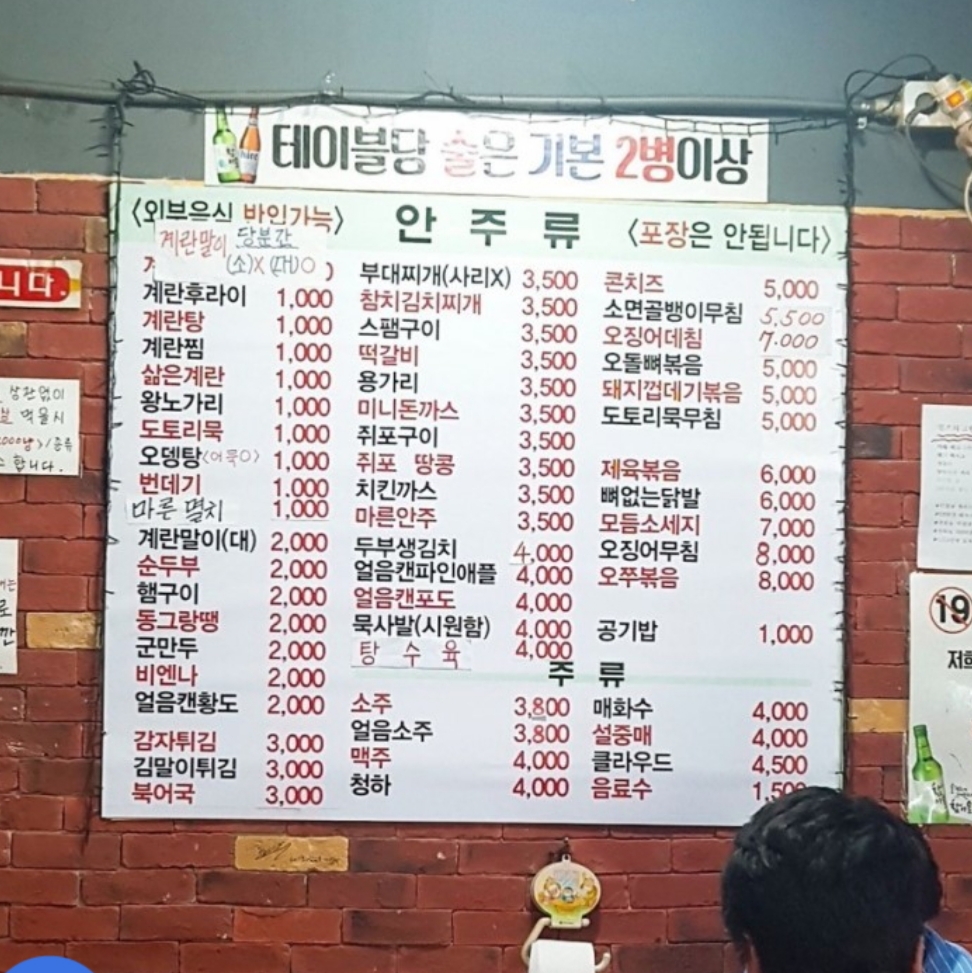 테이블당 술은 기본 2병이상
<외부음식 반입가능>
안 주 류
<포장은 안됩니다>
계란말이 당분간
(소)X (대)O
계란후라이 1,000
계란탕 1,000
계란찜 1,000
삶은계란 1,000
왕노가리 1,000
도토리묵 1,000
오뎅탕<어묵O> 1,000
번데기 1,000
마른 멸치 1,000
계란말이(대) 2,000
순두부 2,000
햄구이 2,000
동그랑땡 2,000
군만두 2,000
비엔나 2,000
얼음캔황도 2,000
감자튀김 3,000
김말이튀김 3,000
북어국 3,000
부대찌개(사리X) 3,500
참치김치찌개 3,500
스팸구이 3,500
떡갈비 3,500
용가리 3,500
미니돈까스 3,500
쥐포구이 3,500
쥐포 땅콩 3,500
치킨까스 3,500
마른안주 3,500
두부생김치 4,000
얼음캔파인애플 4,000
얼음캔포도 4,000
묵사발(시원함) 4.000
탕 수 육 4,000
콘치즈 5,000
소면골뱅이무침 5,500
오징어데침 7.000
오돌뼈볶음 5,000
돼지껍데기볶음 5,000
도토리묵무침 5,000
제육볶음 6,000
뼈없는닭발 6,000
모듬소세지 7,000
오징어무침 8,000
오쭈볶음 8,000
공기밥 1,000
주 류
소주 3,800
얼음소주 3,800
맥주 4,000
청하 4,000
매화수 4,000
설중매 4,000
클라우드 4,500
음료수 1,500
니다.
상관없이
먹을시
합니다.
19
저희